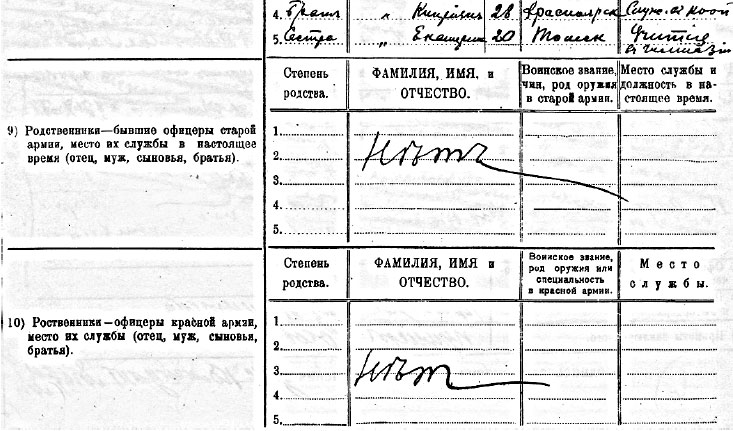 4. Брат " 28 Красноярск Служ.
5. Сестра " Екатерин 20 Томск
Степень родства. ФАМИЛИЯ, ИМЯ, и ОТЧЕСТВО. Воинское звание, чин, род оружия в старой армии. Место службы и должность в настоящее время.
9) Родственники—бывшие офицеры старой
армии, место их службы в настоящее
время (отец, муж, сыновья, братья).
1.
2. Нѣтъ
3.
4.
5.
Степень родства. ФАМИЛИЯ, ИМЯ и ОТЧЕСТВО. Воинское звание, род оружия или специальность в красной армии. Место службы.
10) Роственники—офицеры красной армии,
место их службы (отец, муж, сыновья,
братья).
1.
2.
3. Нѣт
4.
5.